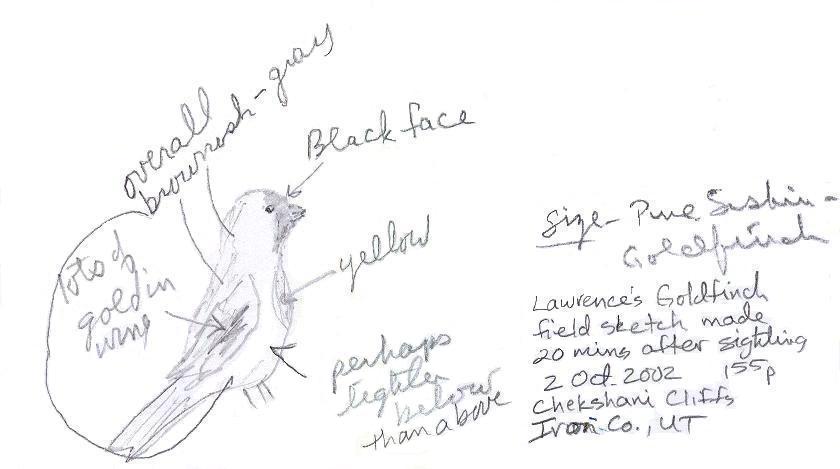 overall
brownish-gray
Black face
lots of
gold in
wing
yellow
perhaps
lighter
below
than above
Size - Pine Siskin -
Goldfinch
Lawrence's Goldfinch
field sketch made
20 mins after sighting
2 Oct. 2002 155p
Chekshani Cliffs
Iron Co., UT